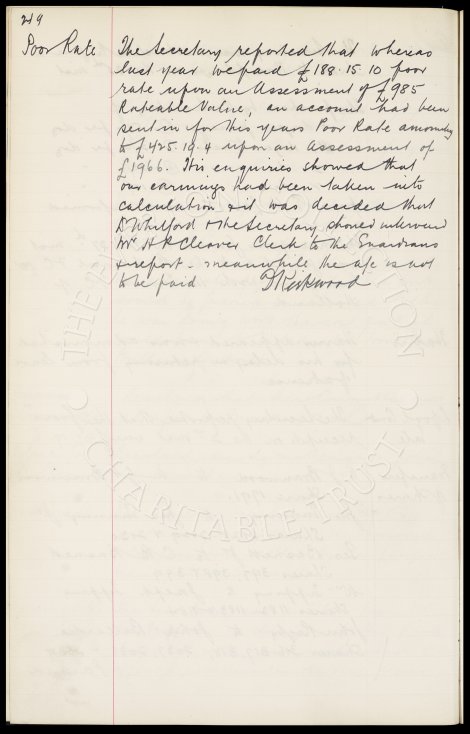 219
Poor Rate The Secretary reported that whereas
last year we paid £188.15.10 poor
rate upon an Assessment of £985
Rateable Value, an account had been
sent in for this years Poor Rate amounting
to £425.19.4 upon an assessment of
£1966. His enquiries showed that
our earnings had been taken into
calculation & it was decided that
Dr Whitford & the Secretary should interview
Mr H R Cleaver Clerk to the Guardians
& report - meanwhile the a/c is not
to be paid DKirkwood
CHARITABLE TRUST